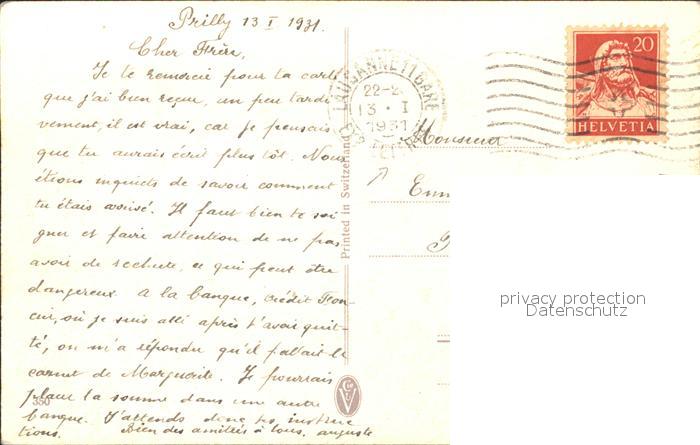 Prilly 13 I 1931.
Cher Frère,
Je te remercie pour ta carte
que j'ai bien reçue, un peu tardi-
vement, il est vrai, car je pensais
que tu aurais écrit plus tôt. Nous
étions inquiets de savoir comment
tu étais arrivé. Il faut bien te soi-
gner et faire attention de ne pas
avoir de rechute, ce qui peut être
dangereux. A la banque, crédit Fon-
cier, où je suis allé après t'avoir quit-
té, on m'a répondu qu'il fallait le
carnet de Marguerite. Je pourrais
placer la somme dans une autre
banque. J'attends donc tes instruc
tions. Bien des amitiés à tous, auguste
350
Printed in Switzerland
LAUSANNE 1 GARE
22-2
13 · I
1931
20
HELVETIA
Monsieur
privacy protection
Datenschutz